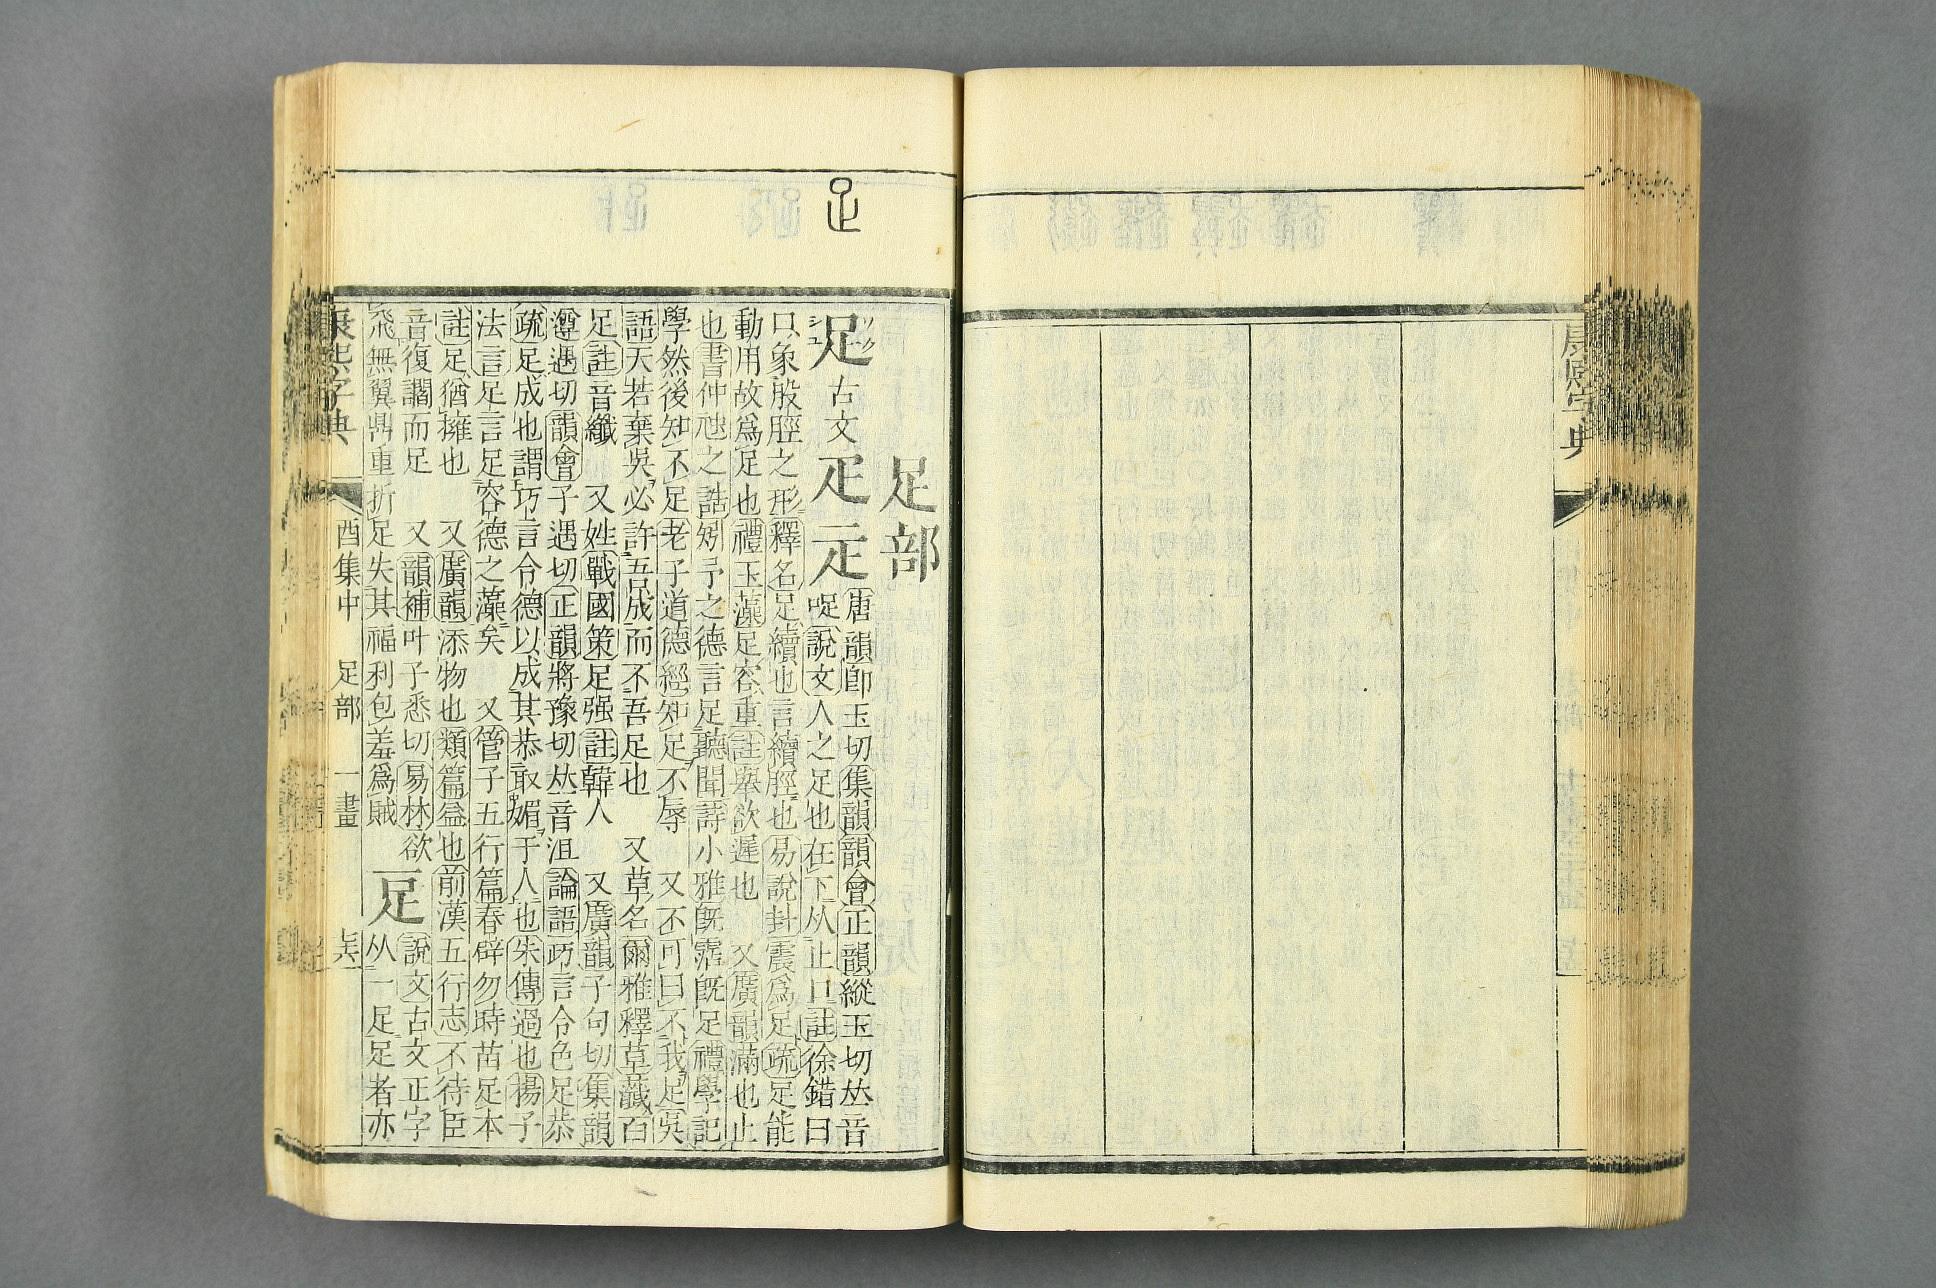 康熙字典
足
足部
足 ソク シユ 古文 疋
唐韻卽玉切集韻韻會正韻縱玉切𠀤音
哫說文人之足也在下从止口註徐鍇曰
只象股脛之形釋名足續也言續脛也易說卦震爲足疏足能
動用故爲足也禮玉藻足容重註舉欲遲也 又廣韻滿也止
也書仲虺之誥矧予之德言足聽聞詩小雅旣霑旣足禮學記
學然後知不足老子道德經知足不辱 又不可曰不我足吳
語天若棄吳必許吾成而不吾足也 又草名爾雅釋草虃百
足註音纖 又姓戰國策足强註韓人 又廣韻子句切集韻
遵遇切韻會子遇切正韻將豫切𠀤音沮論語巧言令色足恭
疏足成也謂巧言令德以成其恭取媚于人也朱傳過也揚子
法言足言足容德之藻矣 又管子五行篇春辟勿時苗足本
註足猶擁也 又廣韻添物也類篇益也前漢五行志不待臣
音復讇而足 又韻補叶子悉切易林欲
飛無翼鼎重折足失其福利包羞爲賊
𧾸
說文古文正字
从一足足者亦
康熙字典 酉集中 足部 一畫